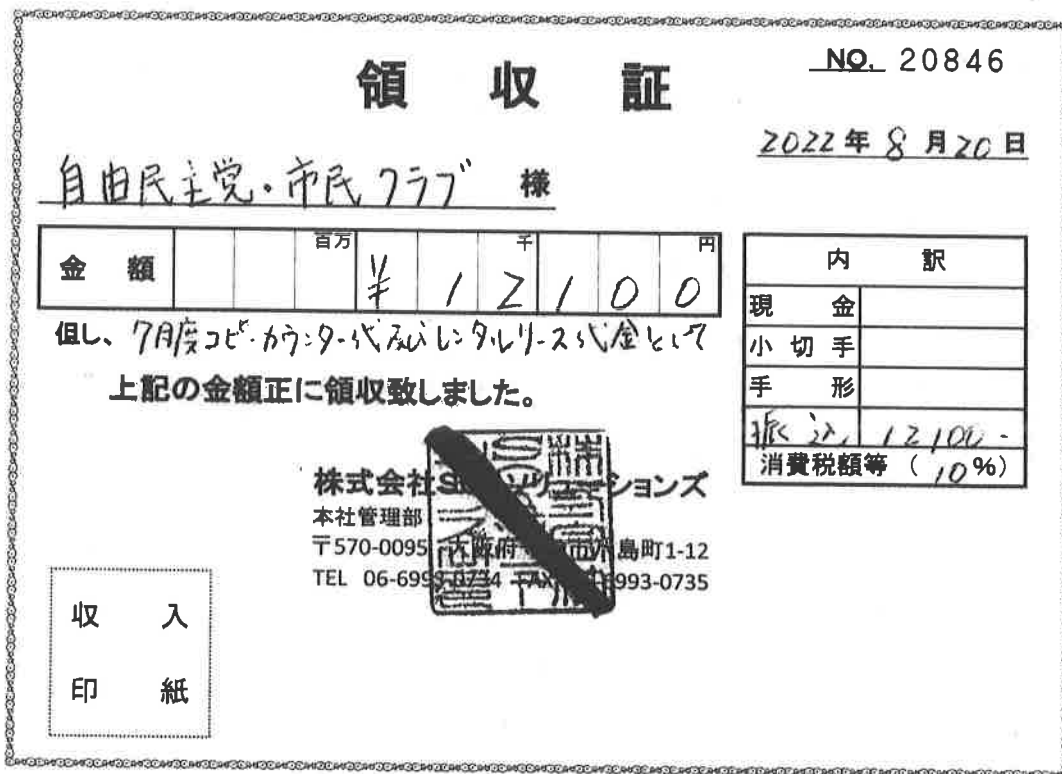 NO. 20846
領収証
2022年8月20日
自由民主党・市民クラブ 様
金額 百万 千 円
¥12100
但し、7月度コピーカウンター代及びレンタルリース代金として
上記の金額正に領収致しました。
内訳
現金
小切手
手形
振込 12100-
消費税額等 (10%)
株式会社 ションズ
本社管理部
〒570-0095 大阪府 市 島町1-12
TEL 06-699 0734 FAX 6993-0735
収入
印紙